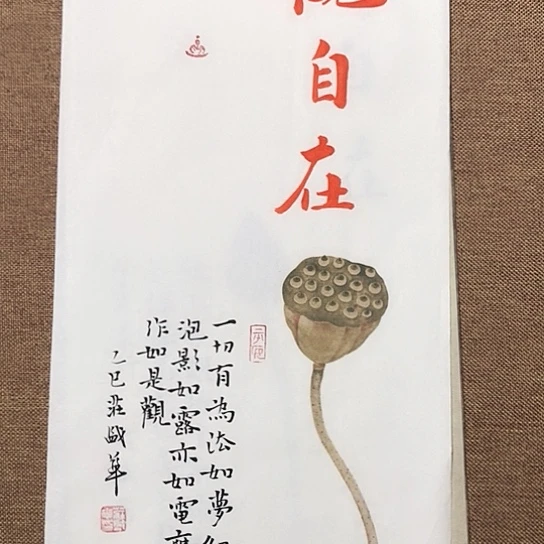 自在
一切有為法如夢
泡影如露亦如電應
作如是觀
乙巳莊華